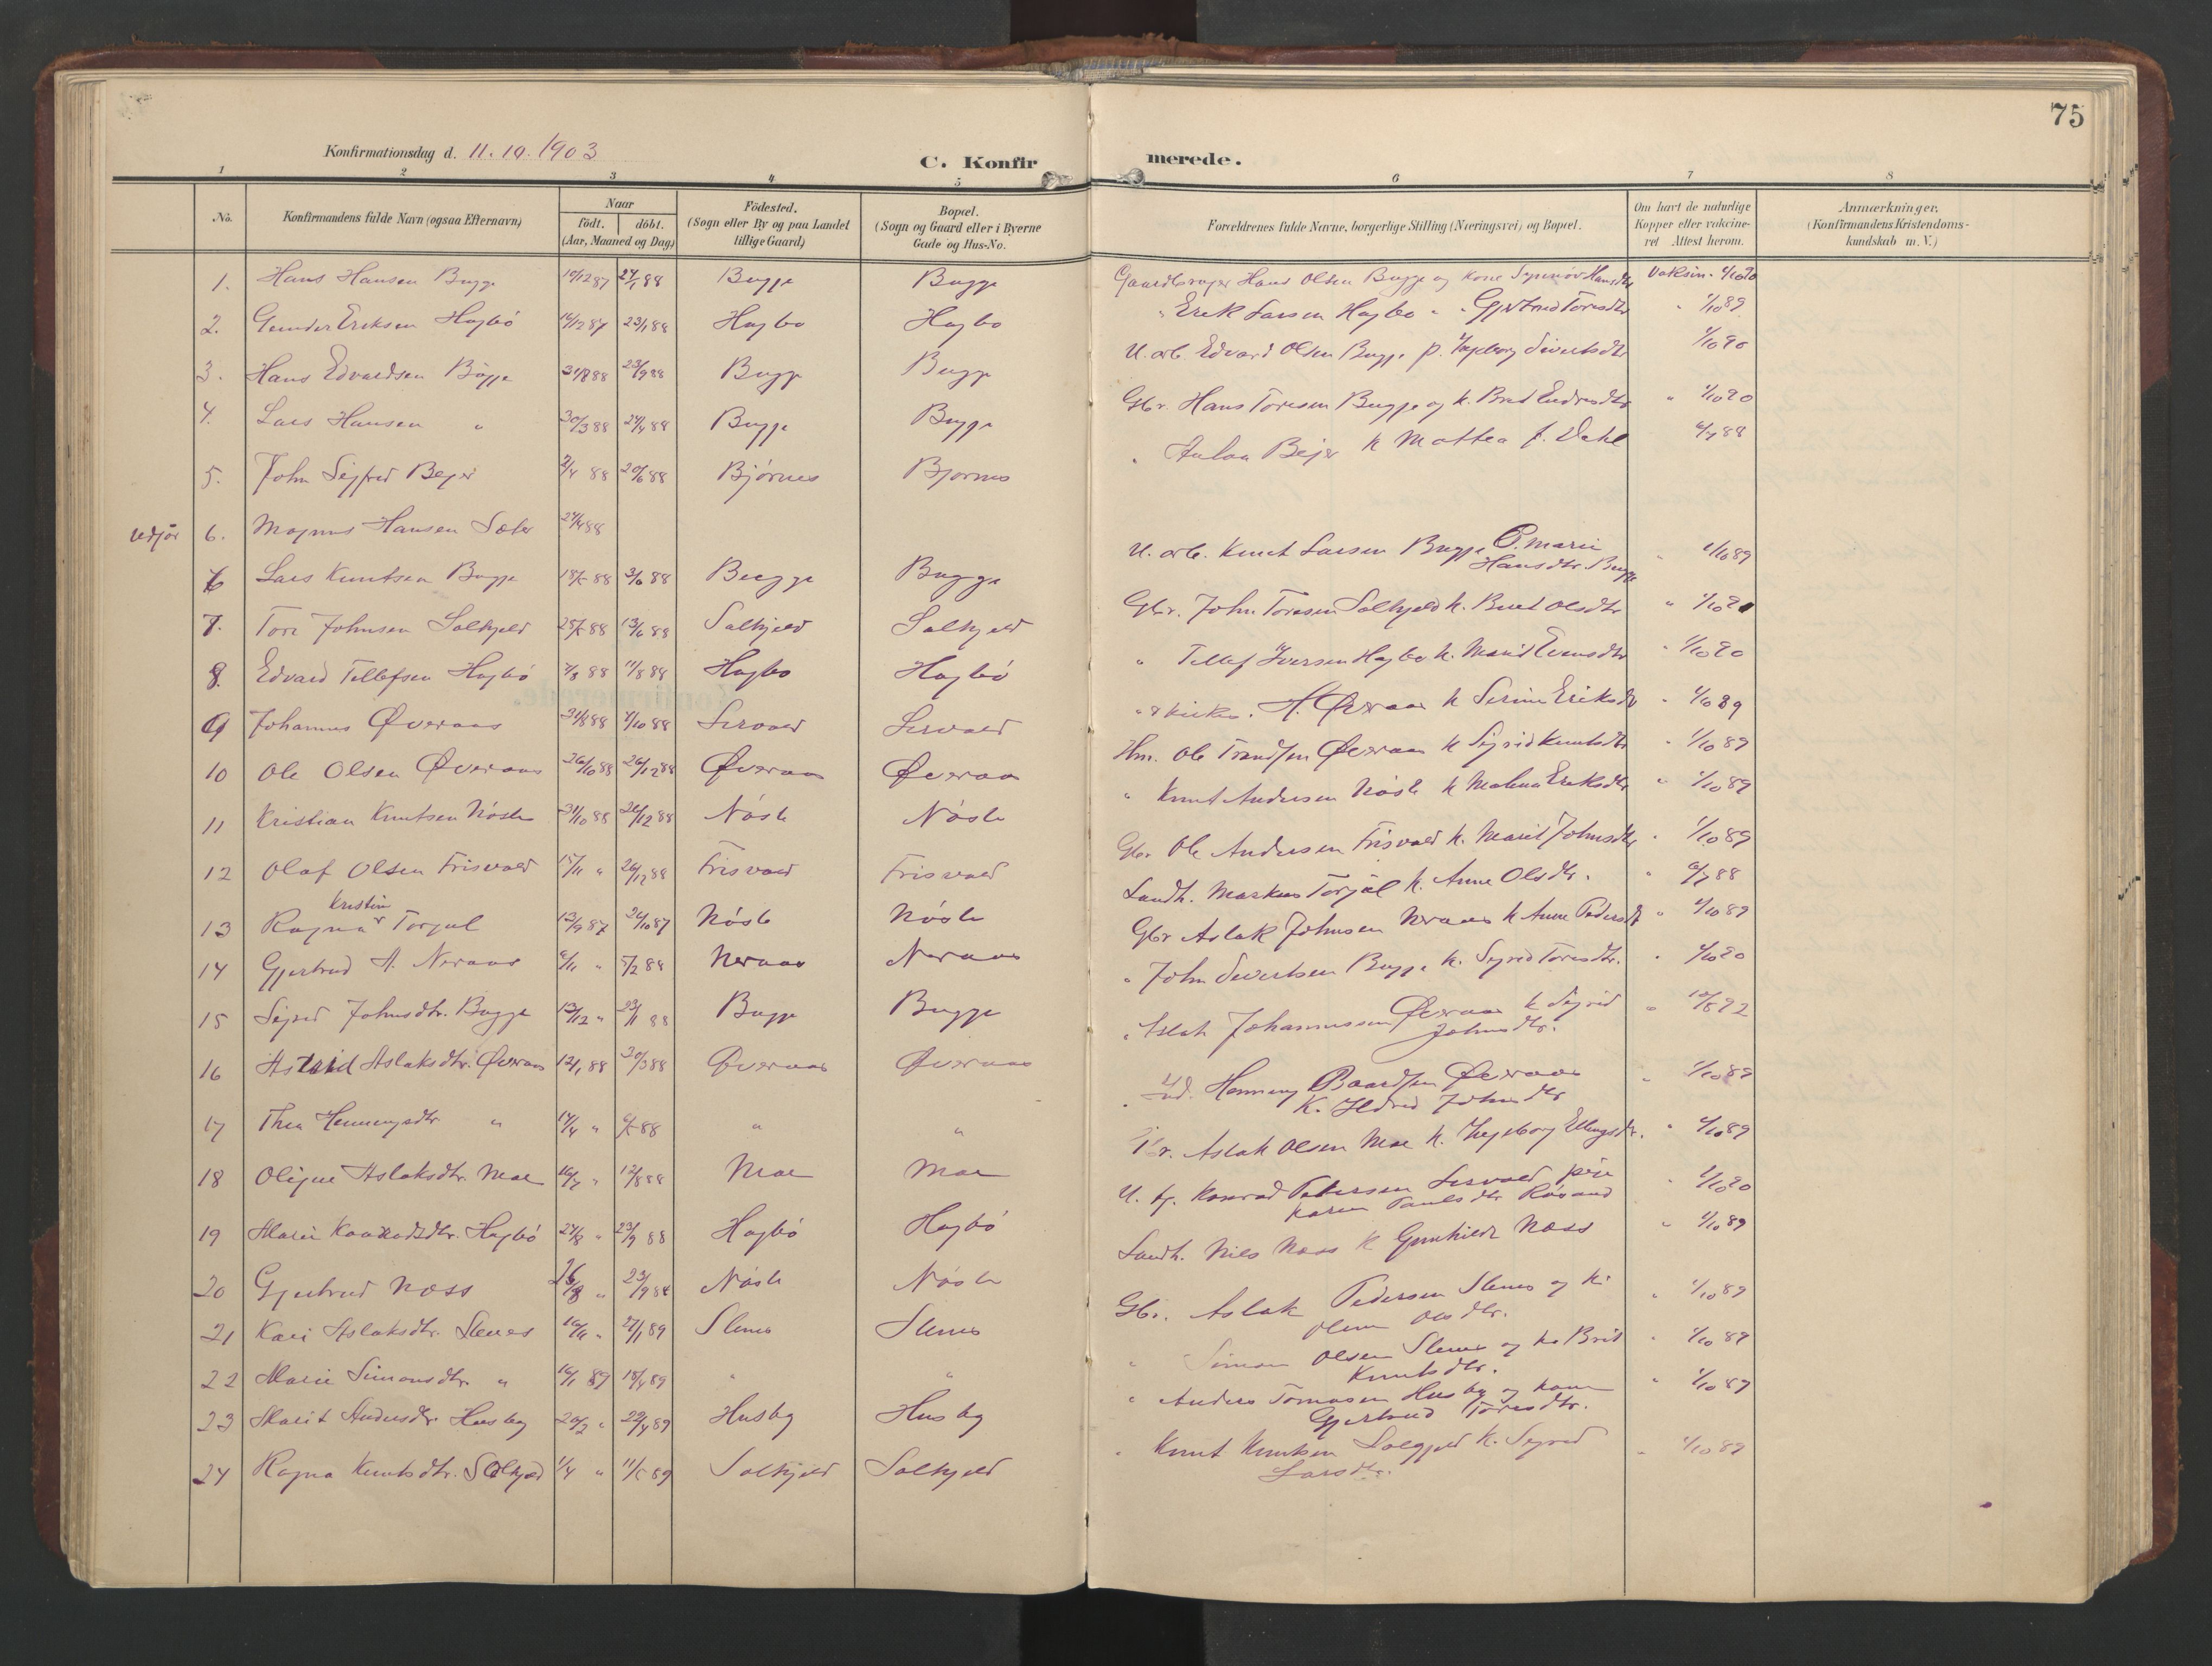 75
Konfirmationsdag d. 11.10.1903
C. Konfirmerede.
1 2 3 4 5 6 7 8
No. Konfirmandens fulde Navn (ogsaa Efternavn) Naar födt. döbt. (Aar, Maaned og Dag) Födested. (Sogn eller By og paa Landet tillige Gaard) Bopæl. (Sogn og Gaard eller i Byerne Gade og Hus-No. Forældrenes fulde Navne, borgerlige Stilling (Næringsvei) og Bopæl. Om havt de naturlige Kopper eller vakcineret Attest herom. Anmærkninger. (Konfirmandens Kristendomskundskab m. V.)
1. Hans Hansen Bugge 10/12 87 27/1 88 Bugge Bugge Gaardbruger Hans Olsen Bugge og Kone Hansdtr Vaksin. 1/10 90
2. Gunder Eriksen Hagbö 14/12 87 23/1 88 Hagbo Hagbo " Erik Larsen Hagbo " Gjertrud Toresdtr " 1/10 89
3. Hans Edvardsen Bugge 31/8 88 23/9 88 Bugge Bugge U. arb. Edvard Olsen Bugge p. Ingeborg Sivertsdtr 1/10 90
4. Lars Hansen " 30/3 88 24/4 88 Bugge Bugge Gbr. Hans Toresen Bugge og k. Brit Endresdtr " 1/10 90
5. John Sigfred Bejer 2/4 88 20/6 88 Björnes Bjornes " Bejer k Mattea f. Dahl 6/7 88
udgår 6. Magnus Hansen Sæter 24/4 88
6 Lars Knutsen Bugge 18/5 88 3/6 88 Bugge Bugge U. arb. Knut Larsen Bugge O. Marie Hansdtr. Bugge " 1/10 89
7. Tore Johnsen Solkjeld 25/5 88 13/6 88 Solkjeld Solkjeld Gbr. John Toresen Solkjeld k. Brit Olsdtr " 1/10 90
8. Edvard Tellefsen Hagbö 7/8 88 11/8 88 Hagbo Hagbö " Tellef Iversen Hagbo k. Marit Evensdtr " 1/10 90
9 Johannes Øveraas 31/8 88 7/10 88 Sirvald Sirvald A. Øveraas k Serine Eriksdtr " 1/10 89
10 Ole Olsen Øveraas 26/10 88 26/12 88 Øveraas Øveraas Hm. Ole Trondsen Øveraas k Sigrid Knutsdtr " 1/10 89
11 Kristian Knutsen Nöste 31/10 88 26/12 88 Nöste Nöste " Knut Andersen Nöste k Malena Eriksdtr " 1/10 89
12 Olaf Olsen Frisvold 15/11 " 26/12 88 Frisvold Frisvold Gbr Ole Andersen Frisvold k. Marit Johnsdtr " 1/10 89
13 Ragna Kristine Torjul 13/9 87 26/10 87 Nöste Nöste Landh. Markus Torjul k. Anne Olsdtr. " 6/7 88
14 Gjertrud A. Neraas 6/11 " 5/2 88 Neraas Neraas Gbr Aslak Johnsen Neraas k Anne Pedersdtr " 1/10 89
15 Sigrid Johnsdtr. Bugge 13/12 " 23/1 88 Bugge Bugge " John Sivertsen Bugge k. Sigrid Toresdtr. " 1/10 90
16 Astrid Aslaksdtr. Øveraas 12/1 88 30/3 88 Øveraas Øveraas " Aslak Johannessen Øveraas k Sigrid Johnsdtr. " 10/5 92
17 Thea Henningsdtr " 14/4 " 6/5 88 " " Henning Baardsen Øveraas K. Ildrid Johnsdtr " 1/10 89
18 Oligne Aslaksdtr. Moe 16/7 " 12/8 88 Moe Moe Aslak Olsen Moe k. Ingeborg Ellingsdtr. " 1/10 89
19 Marie Konradsdtr. Hagbö 27/8 " 23/9 88 Hagbö Hagbö Konrad Petersen Sirvold pige Karen Paulsdtr Rövand " 1/10 90
20 Gjertrud Næss 26/8 " 23/9 88 Nöste Nöste Landh. Nils Næss k Gunhild Næss " 1/10 89
21 Kari Aslaksdtr. Stenes 16/11 " 27/1 89 Stenes Stenes Gbr. Aslak Pedersen Stenes og k. Olsdtr. " 1/10 89
22 Marie Simonsdtr. " 16/1 89 18/4 89 " " " Simon Olsen Stenes og ko Brit Knutsdtr. " 1/10 89
23 Marit Andersdtr. Husby 20/2 " 22/4 89 Husby Husby " Anders Tomasen Husby og kone Gjertrud Toresdtr. " 1/10 89
24 Ragna Knutsdtr. Solkjeld 1/4 " 11/5 89 Solkjeld Solkjeld " Knut Knutsen Solgjeld K. Sigrid Larsdtr. " 1/10 89